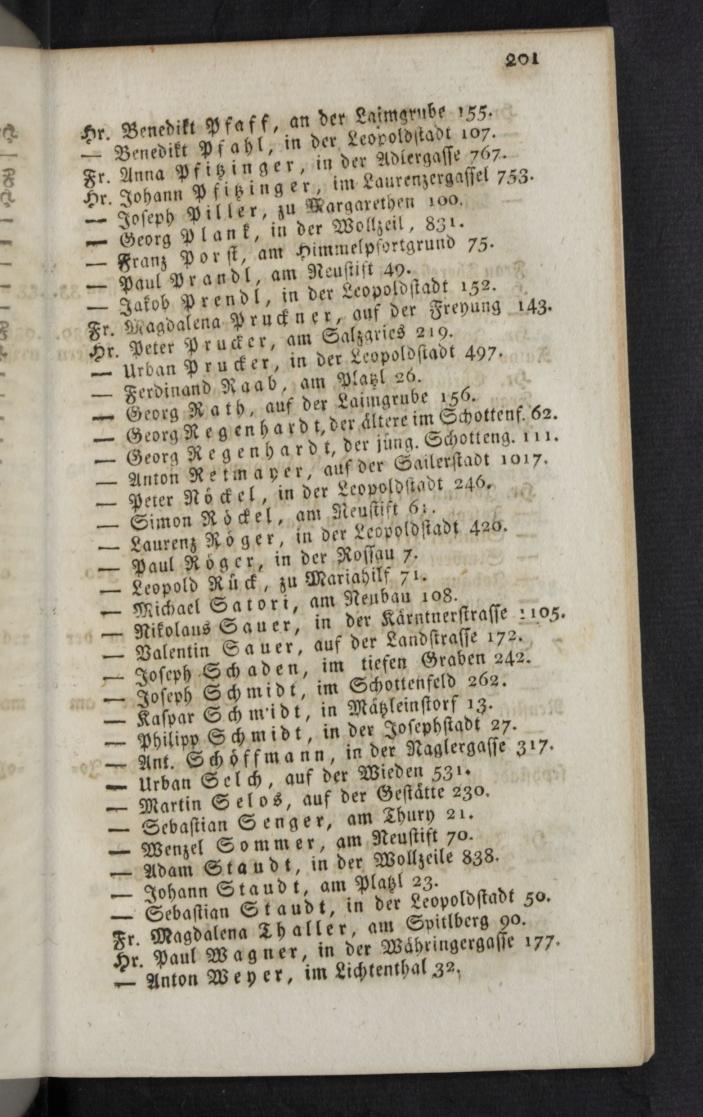 201
Hr. Benedikt Pfaff, an der Laimgrube 155.
— Benedikt Pfahl, in der Leopoldstadt 107.
Fr. Anna Pfitzinger, in der Adlergasse 767.
Hr. Johann Pfitzinger, im Laurenzergassel 753.
— Joseph Piller, zu Margarethen 100.
— Georg Plank, in der Wollzeil, 831.
— Franz Porst, am Himmelpfortgrund 75.
— Paul Prandl, am Neustift 49.
— Jakob Prendl, in der Leopoldstadt 152.
Fr. Magdalena Pruckner, auf der Freyung 143.
Hr. Peter Prucker, am Salzgries 219.
— Urban Prucker, in der Leopoldstadt 497.
— Ferdinand Raab, am Platzl 26.
— Georg Rath, auf der Laimgrube 156.
— Georg Regenhardt, der ältere im Schottenf. 62.
— Georg Regenhardt, der jüng. Schotteng. 111.
— Anton Retmayer, auf der Sailerstadt 1017.
— Peter Röckel, in der Leopoldstadt 246.
— Simon Röckel, am Neustift
— Laurenz Röger, in der Leopoldstadt 420.
— Paul Röger, in der Rossau 7.
— Leopold Rück, zu Mariahilf 71.
— Michael Satori, am Neubau 108.
— Nikolaus Sauer, in der Kärntnerstrasse 1105.
— Valentin Sauer, auf der Landstrasse 172.
— Joseph Schaden, im tiefen Graben 242.
— Joseph Schmidt, im Schottenfeld 262.
— Kaspar Schmidt, in Mätzleinstorf 13.
— Philipp Schmidt, in der Josephstadt 27.
— Ant. Schöffmann, in der Naglergasse 317.
— Urban Selch, auf der Wieden 531.
— Martin Selos, auf der Gestätte 230.
— Sebastian Senger, am Thury 21.
— Wenzel Sommer, am Neustift 70.
— Adam Staudt, in der Wollzeile 838.
— Johann Staudt, am Platzl 23.
— Sebastian Staudt, in der Leopoldstadt 50.
Fr. Magdalena Thaller, am Spitlberg 90.
Hr. Paul Wagner, in der Währingergasse 177.
— Anton Weyer, im Lichtenthal 32.